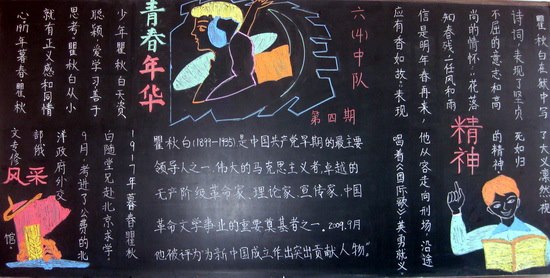 青春年华
六(4)中队
第四期
少年瞿秋白天资
聪颖爱学习善于
思考,瞿秋白从小
就有正义感和同情
心所年暮春瞿秋
1917年暮春瞿秋
白随堂兄赴北京求学
9月考进了公费的北
洋政府外交
部俄
文专修
馆
风采
瞿秋白(1899-1935)是中国共产党早期的最主要
领导人之一,伟大的马克思主义者,卓越的
无产阶级革命家、理论家、宣传家,中国
革命文学事业的重要奠基者之一。2009.9月
他被评为为新中国成立作出突出贡献人物"
瞿秋白在狱中写了大义凛然,视
诗词,表现了坚贞死如归
不屈的意志和高的精神
尚的情怀:"花落
知春残一任风和雨
信是明年春再来
应有香如故"表现
精神
他从容走向刑场,沿途
唱着《国际歌》英勇就义